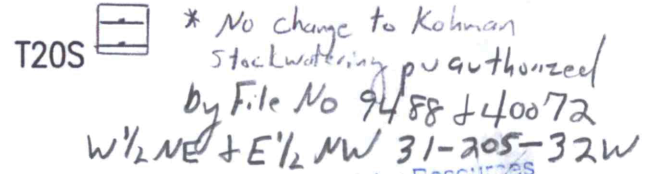 * No change to Kohman
T20S
Stockwatering pu authorized
by File No 9488 & 40072
W½ NE & E½ NW 31-20S-32W